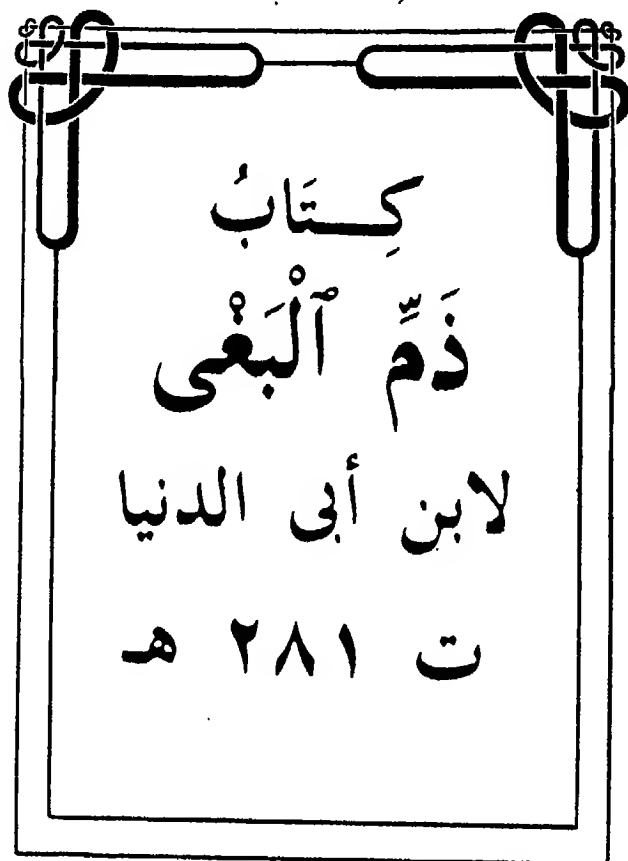 كِـتَابُ
ذَمِّ ٱلْبَغْى
لابن أبى الدنيا
ت ٢٨١ هـ